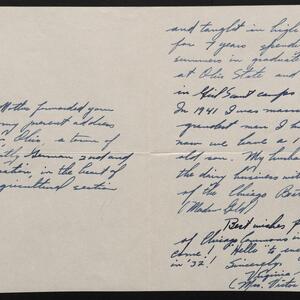 forwarded your
my present address
Ohio, a town of
German
in the heart of
agricultural section
and taught in high
for 7 years spending
summers in graduate
at Ohio State and
in Girl Scout camps
In 1941 I was marri
grandest man I
now we have a
old son. My husba
the dairy business wit
of the Chicago
Best wishes
of Chicago Commons
come! "Hello" to
in '32!
Sincerely,
Virginia
(Mrs. Victor